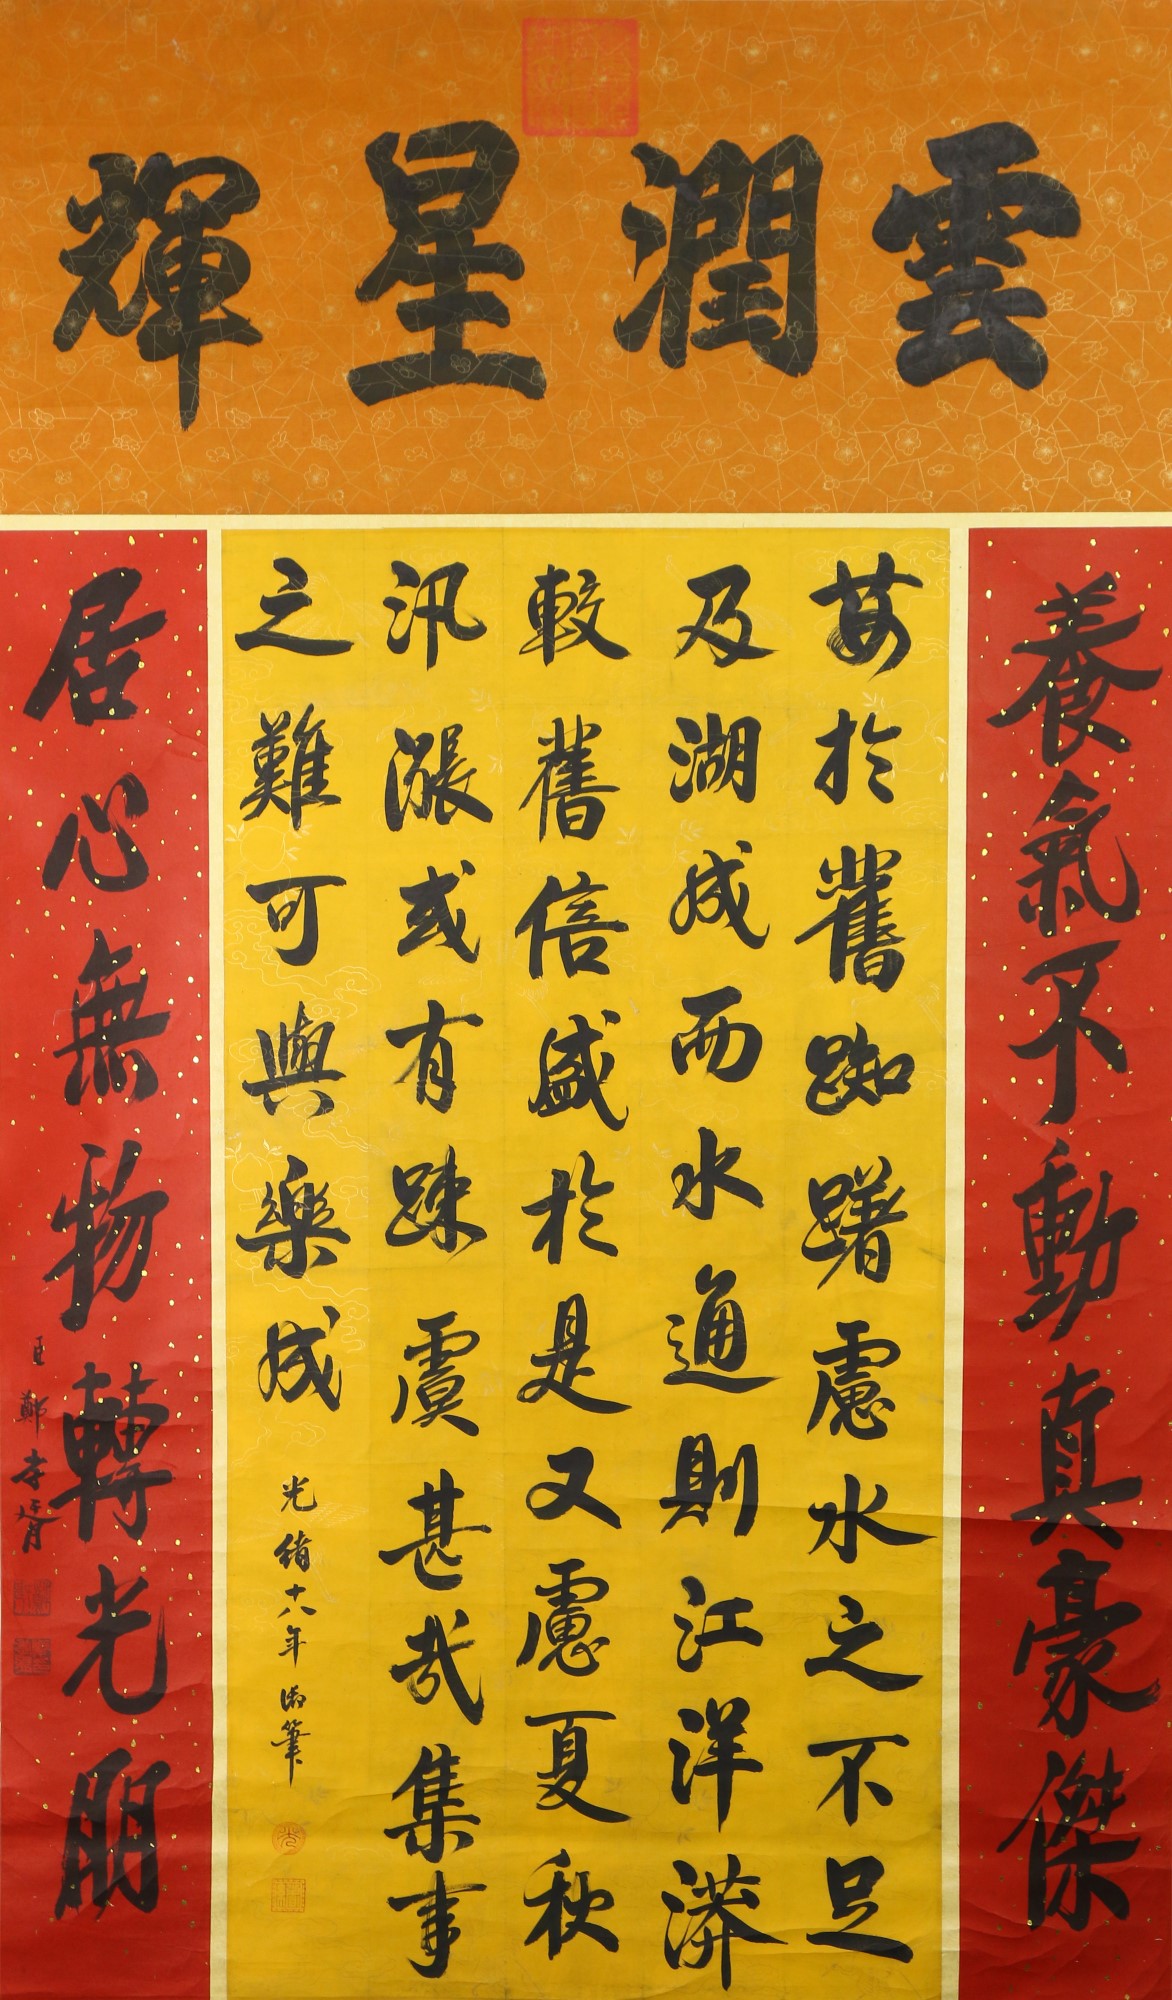 雲潤星輝
養氣不動真豪傑
苟於舊踟躇慮水之不足
及湖成而水通則江洋漭
較舊倍盛於是又慮夏秋
汛漲或有踈虞甚哉集事
之難可與樂成
光緒十八年御筆
居心無物轉光明
鄭孝胥